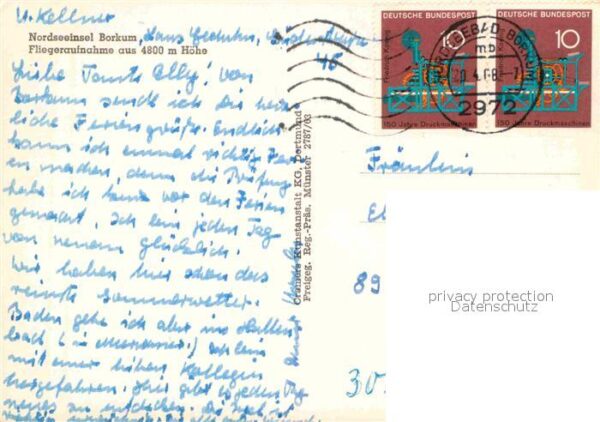 U. Kellner
Nordseeinsel Borkum,
Fliegeraufnahme aus 4800 m Höhe
46
Liebe Tante Elly, von
Borkum sende ich die herz-
liche Feriengrüße. Endlich
kann ich einmal richtig Feri-
en machen, denn die Prüfung
habe ich kurz vor den Ferien
gemacht. Ich bin jeden Tag
von neuem glücklich.
Wir haben hier schon das
reinste Sommerwetter.
Baden gehe ich aber ins Hallen-
bad (in Meerwasser.) Ich bin
mit einer lieben Kollegin
hergefahren. Hier gibt es jeden Tag
neues zu entdecken. Die Insel ist
Cramers Kunstanstalt KG, Dortmund
Freigeg. Reg.-Präs. Münster 2787/63
DEUTSCHE BUNDESPOST
10
Friedrich Koenig
150 Jahre Druckmaschinen
DEUTSCHE BUNDESPOST
10
150 Jahre Druckmaschinen
NORDSEEBAD BORKUM
2972
Fräulein
El
89
30
privacy protection
Datenschutz